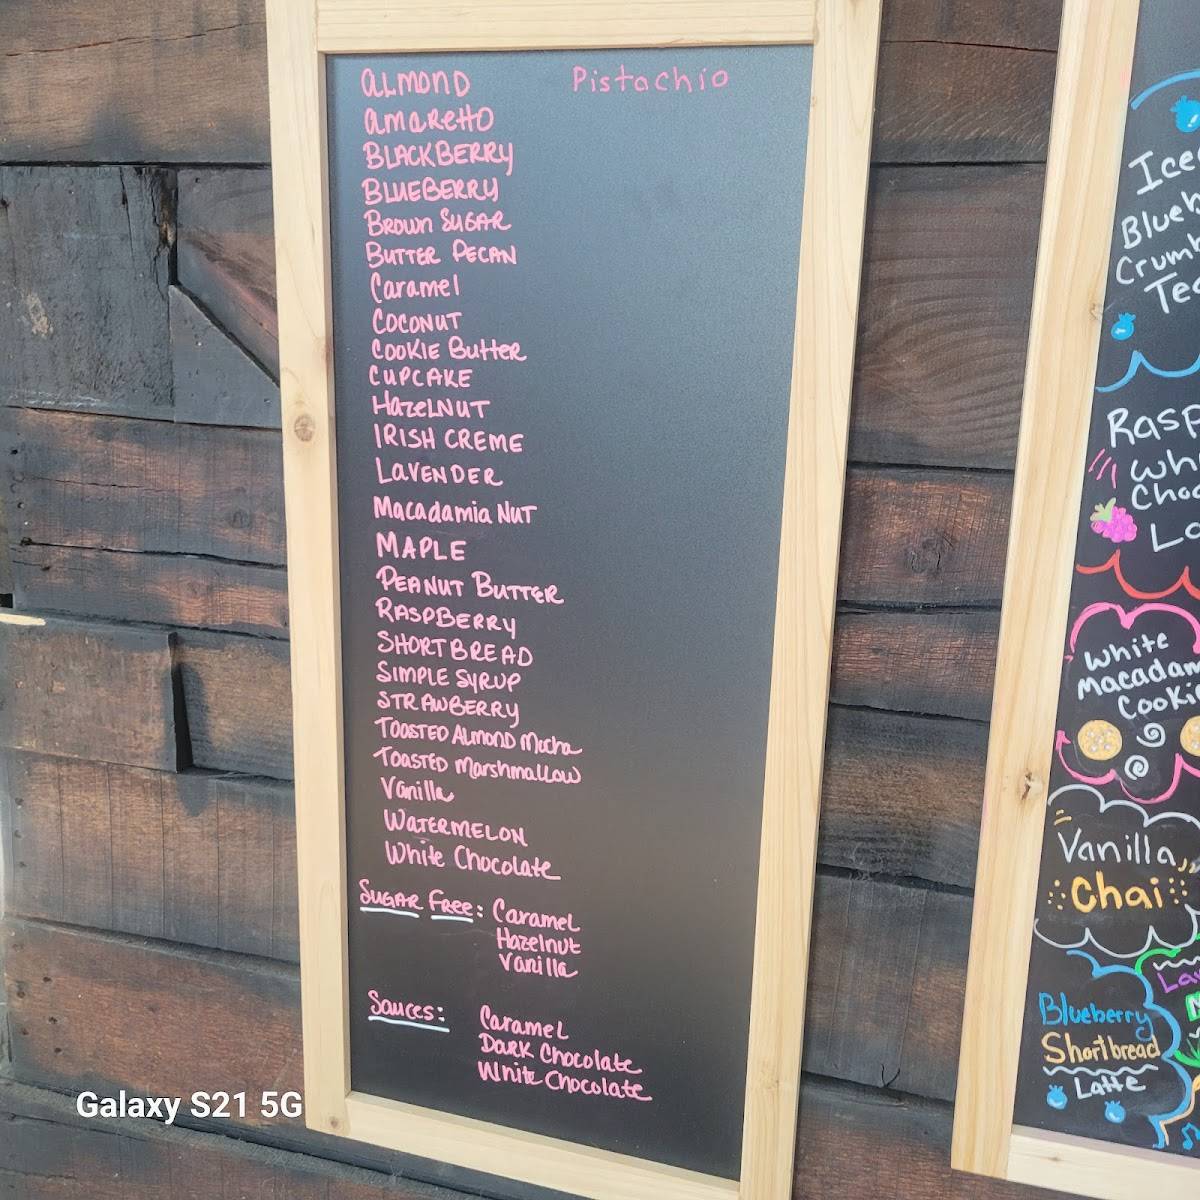 ALMOND
Pistachio
AMARETTO
BLACKBERRY
BLUEBERRY
BROWN SUGAR
BUTTER PECAN
Caramel
COCONUT
COOKIE BUTTER
CUPCAKE
HAZELNUT
IRISH CREME
LAVENDER
Macadamia NUT
MAPLE
PEANUT BUTTER
RASPBERRY
SHORTBREAD
SIMPLE SYRUP
STRAWBERRY
TOASTED ALMOND Mocha
TOASTED Marshmallow
Vanilla
WATERMELON
White Chocolate
SUGAR FREE: Caramel
Hazelnut
Vanilla
Sauces: Caramel
Dark Chocolate
White Chocolate
Iced
Blueb
Crumb
Tea
Rasp
Whi
Choc
La
White
Macadam
Cookie
Vanilla
Chai
Blueberry
Shortbread
Latte
Lav
Galaxy S21 5G